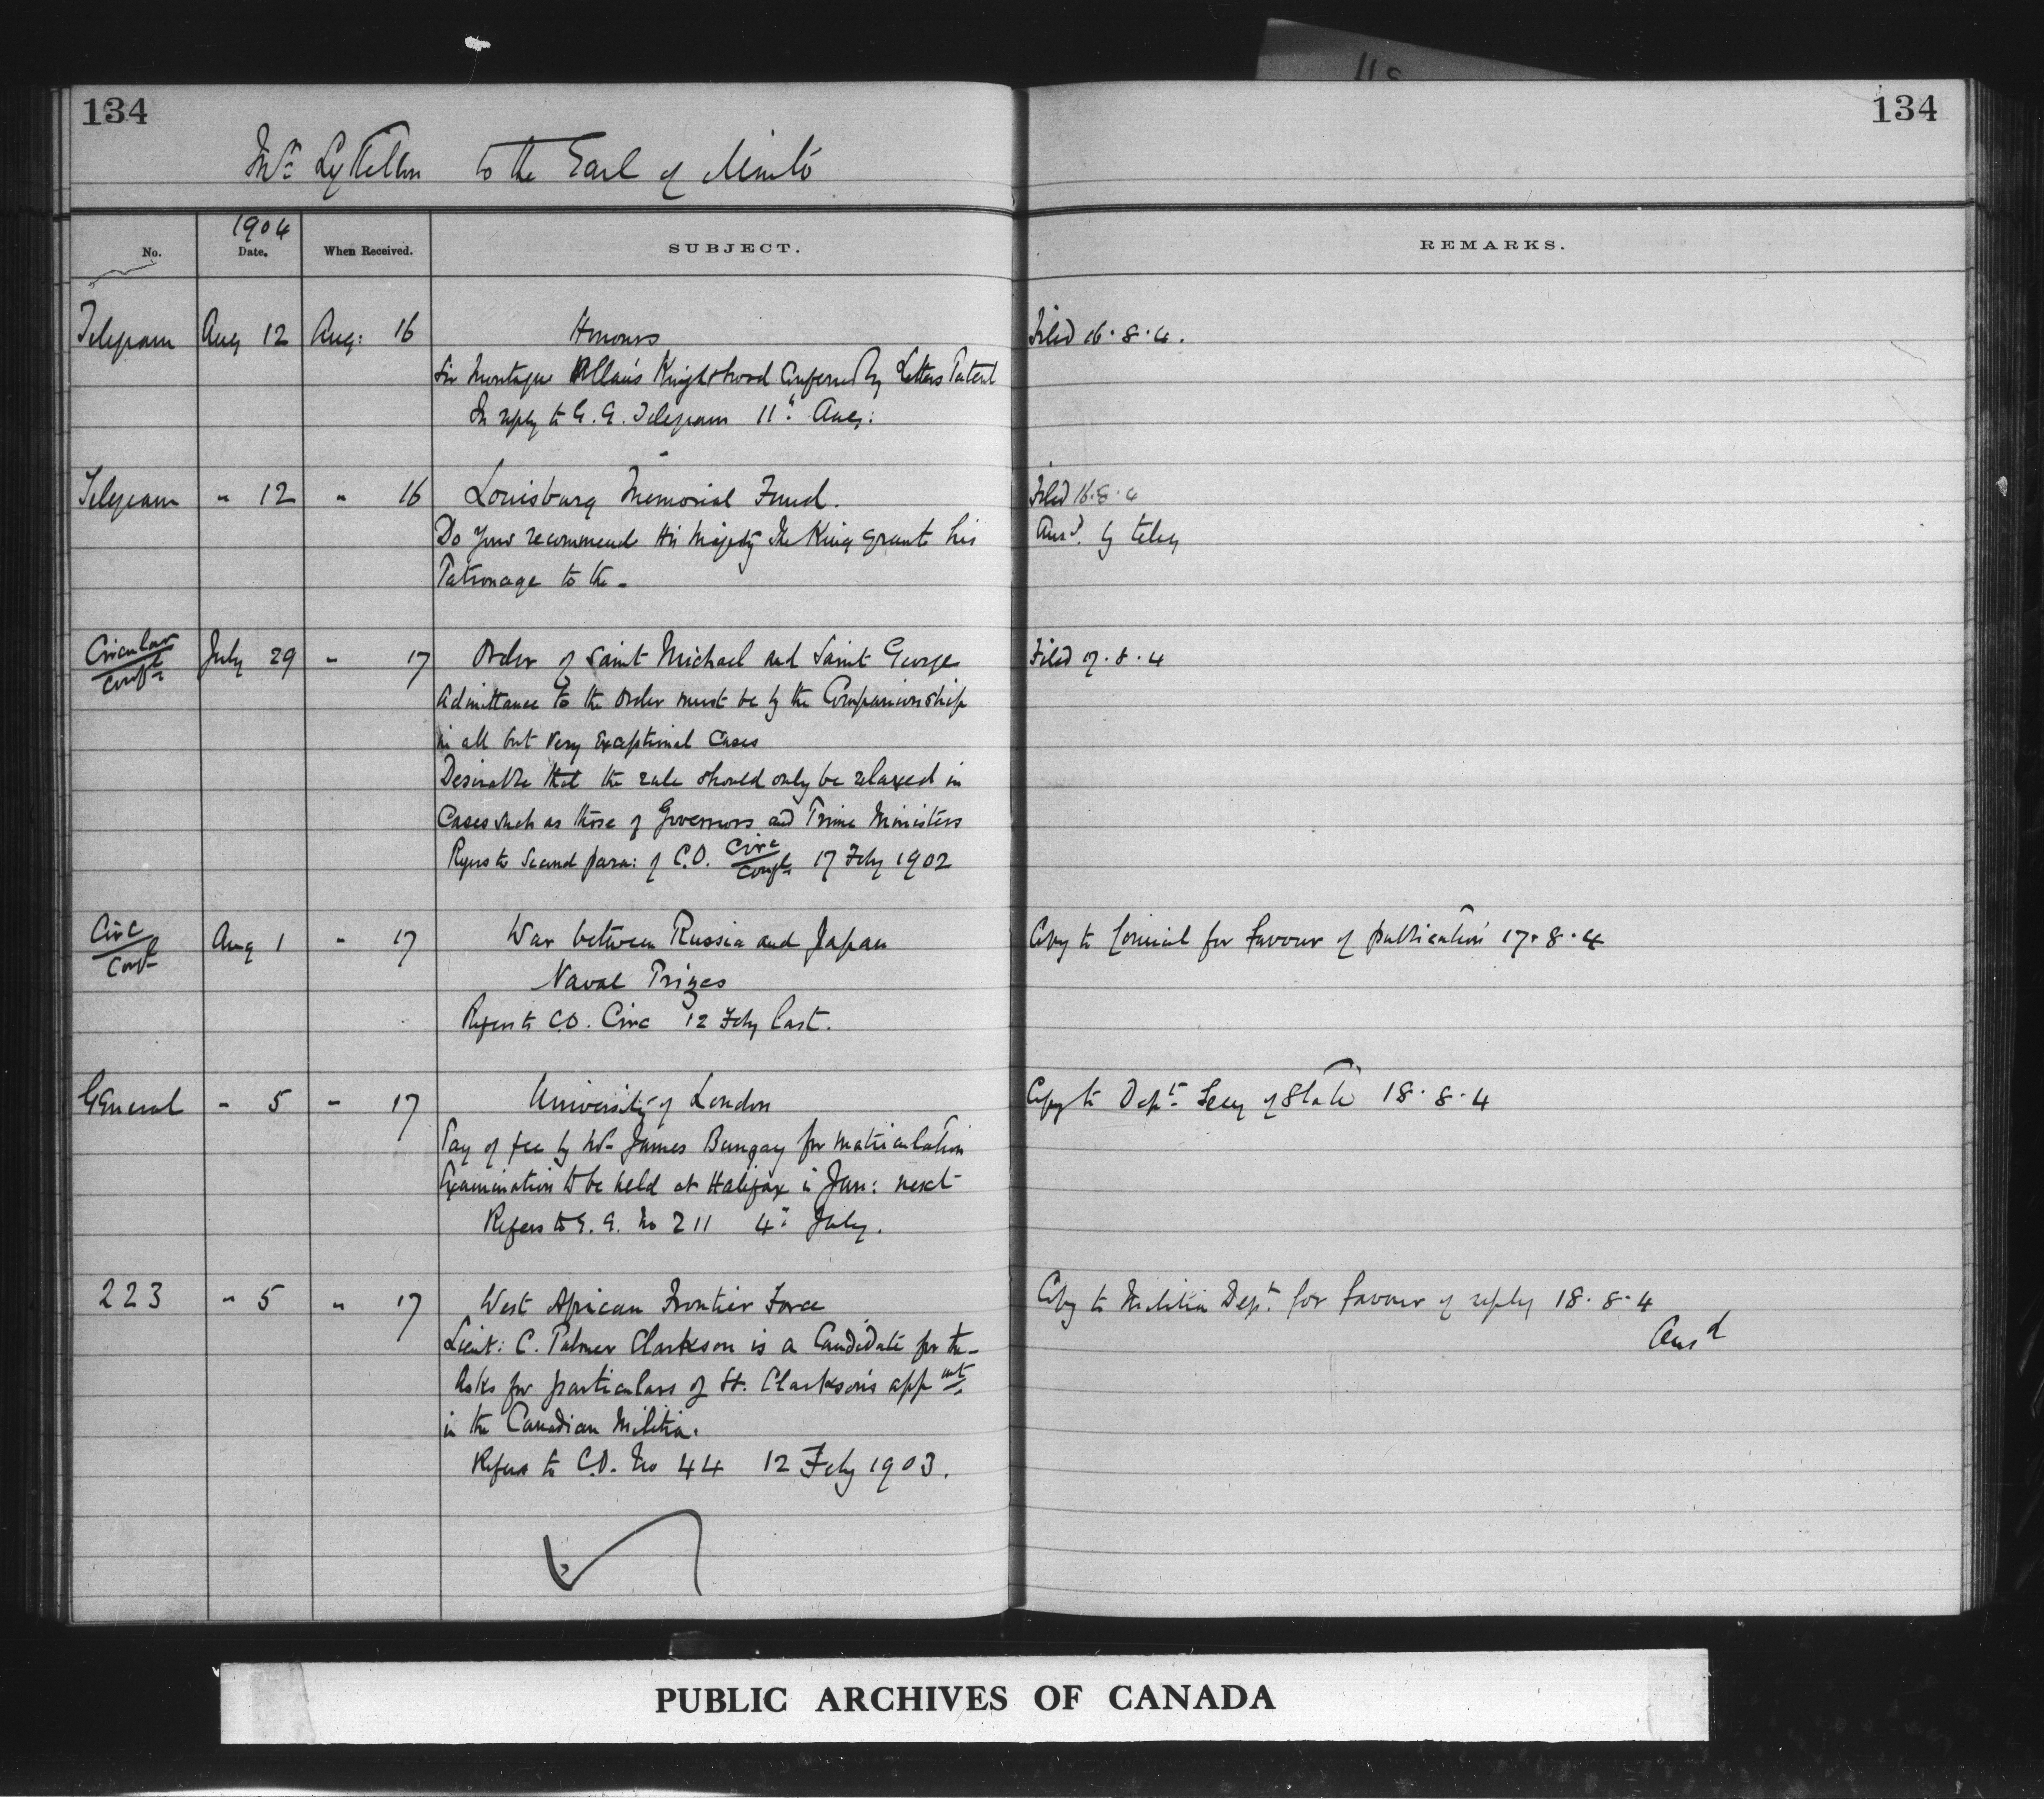 134
134
Mr. Lyttelton to the Earl of Minto
1904
No. Date. When Received. SUBJECT. REMARKS.
Telegram Aug 12 Aug: 16 Honours Filed 16.8.4.
Sir Montague Allan's Knighthood Conferred by Letters Patent
In reply to G.G. Telegram 11" Aug:
Telegram " 12 " 16 Louisburg Memorial Fund. Filed 16.8.4
Do you recommend His Majesty The King grant his Ansd. by teleg
Patronage to the -
Circular July 29 " 17 Order of Saint Michael and Saint George Filed 17.8.4
Confl
Admittance to the Order must be by the Companionship
in all but very exceptional cases
Desirable that the rule should only be relaxed in
Cases such as those of Governors and Prime Ministers
Refers to Second para: of C.O. Circ Confl 17 Feby 1902
Circ Aug 1 " 17 War between Russia and Japan Copy to Council for favour of publication 17.8.4
Conf
Naval Prizes
Refers to C.O. Circ 12 Feby last.
General " 5 " 17 University of London Copy to Dept. Secy of State 18.8.4
Pay of fee by Mr James Bungay for matriculation
Examination to be held at Halifax in Jan: next
Refers to G.G. No 211 4" July.
223 " 5 " 17 West African Frontier Force Copy to Militia Dept. for favour of reply 18.8.4
Ansd
Lieut: C. Palmer Clarkson is a Candidate for the -
Asks for particulars of Lt. Clarkson's appmt.
in the Canadian Militia.
Refers to C.O. No 44 12 Feby 1903.
PUBLIC ARCHIVES OF CANADA